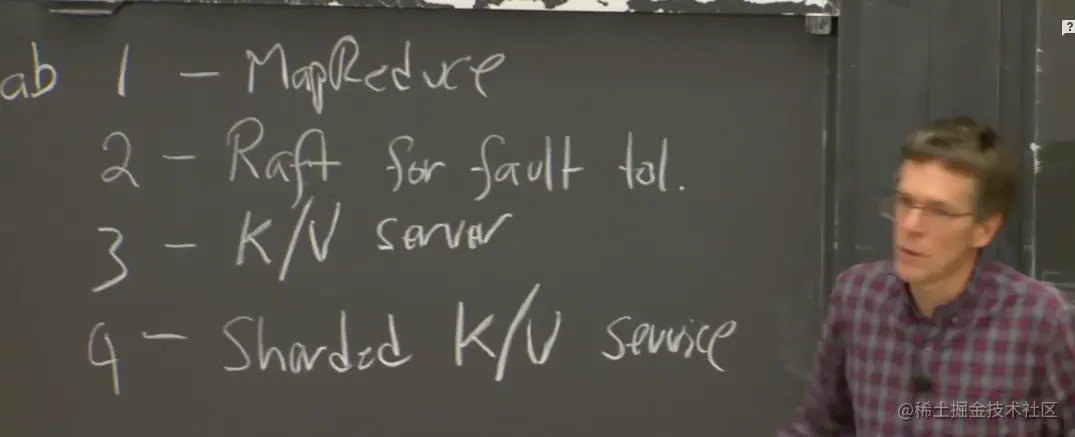 ab 1 – MapReduce
2 – Raft for fault tol.
3 – K/V server
4 – Sharded K/V service
?
@稀土掘金技术社区